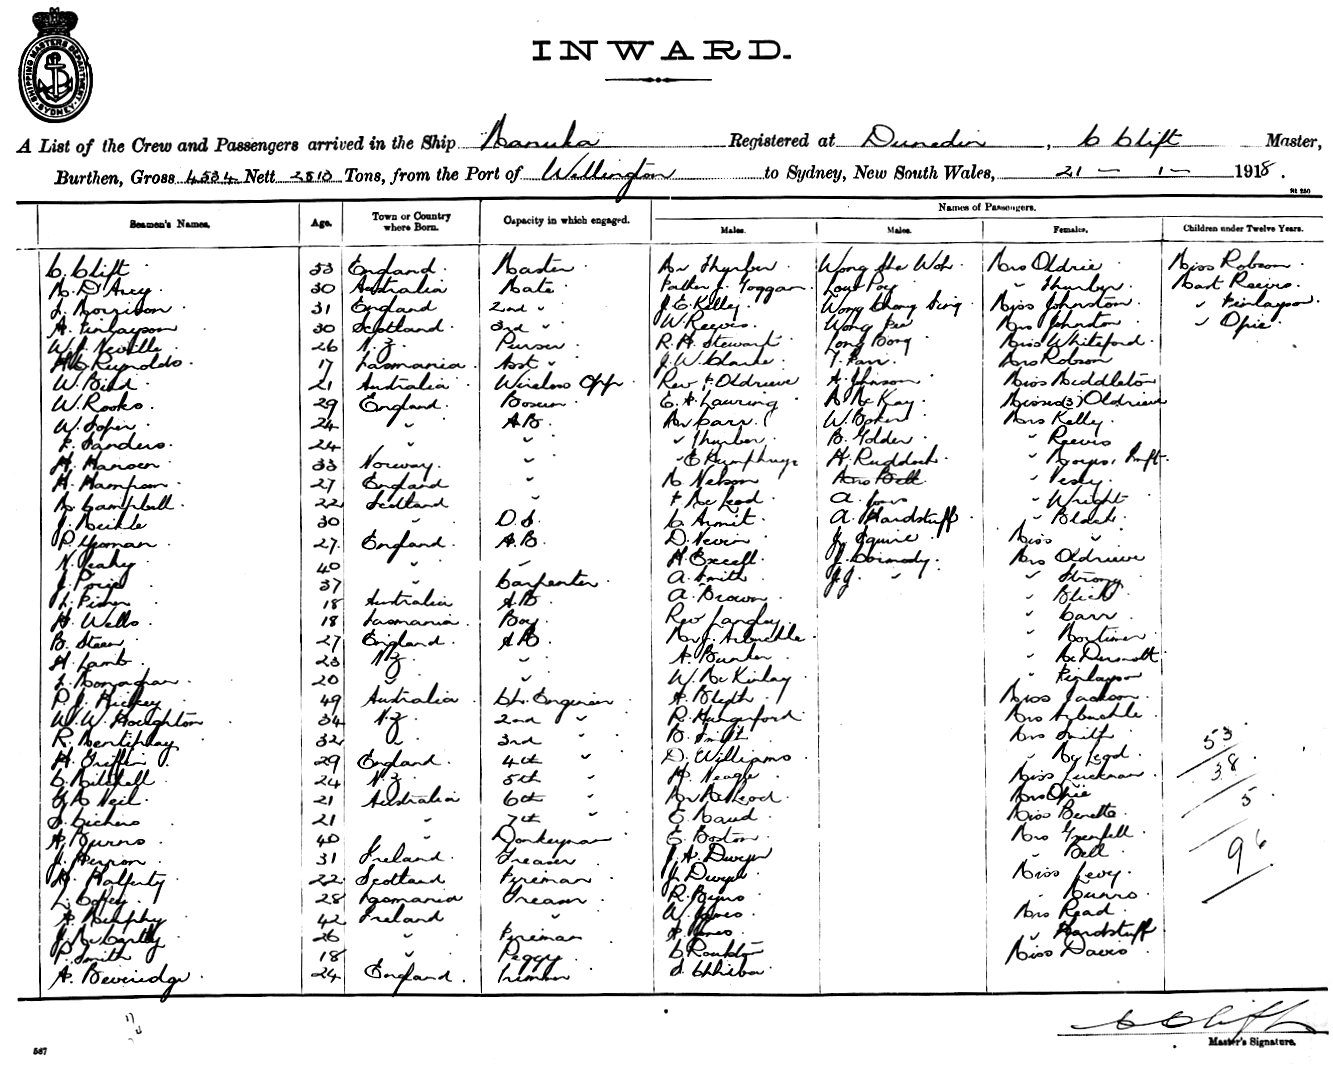 SHIPPING MASTERS DEPARTMENT SYDNEY
INWARD.
A List of the Crew and Passengers arrived in the Ship "Manuka" Registered at Dunedin, C Clift Master,
Burthen, Gross 4534 Nett 2513 Tons, from the Port of Wellington to Sydney, New South Wales, 21 - 1 - 1918.
Seamen's Names. Age. Town or Country where Born. Capacity in which engaged. Names of Passengers.
Males. Males. Females. Children under Twelve Years.
C. Clift 53 England Master Mr Thurber Wong She Woh Mrs Oldrie Miss Robson
M. D'Arcy 30 Australia Mate Father J. Goggan Louy Poy " Thurber Mast Reevis
L. Morrison 31 England 2nd " J. E. Kelly Wong Chong Sing Miss Johnston " Finlayson
A. Finlayson 30 Scotland 3rd " W. Reevis Wong Mrs Johnston " Opie
W. J. Neville 26 N.Z. Purser R. H. Stewart Long Bong Miss Whiteford
Reynolds 17 Tasmania Asst " J. W. Clarke T. Parr Mrs Robson
W. Bird 21 Australia Wireless Opp Rev F. Oldrieve A. Johnson Miss Middleton
W. Rooks 29 England Bosun E. A. Lawring A. McKay Misses (3) Oldrieve
W. Soper 24 " A.B. Mr Carr W. Baker Mrs Kelly
F. Sanders 24 " " " Thurber B. Golder " Reevis
H. Hansen 33 Norway " " E Humphrys H. Ruddock " Inft
H. Hampson 27 England " M. Nelson Mrs Bell "
M. Campbell 22 Scotland " F. McLeod A. " Wright
J. Meikle 30 " O.S. C. Armit A. Hardstuff " Black
P. Yeoman 27 England A.B. D. Nevin J. Squire Miss "
N. Leahy 40 " " H. Excell J. Cormody Mrs Oldrieve
J. Poris 37 " Carpenter A. Smith J.J. " " Strong
L. 18 Australia A.B. A. Brown " Blick
H. Wells 18 Tasmania Boy Rev Langley " Carr
B. Steen 27 England A.B. Mr J. Arbuckle " Mortimer
H. Lamb 23 N.Z. " A. Bunter " McDermott
L. Monaghan 20 " " W. McKinlay " Finlayson
P. J. Hickey 49 Australia Ch. Engineer A. Blyth Miss Jackson
W. W. Houghton 34 N.Z. 2nd " R. Hungerford Mrs Arbuckle
R. Mentiplay 32 " 3rd " B. Smith Mrs Smith
H. Griffin 29 England 4th " D. Williams " McLeod
C. Mitchell 24 N.Z. 5th " H. Neage Miss Luckman
Neil 21 Australia 6th " Mr McLeod Mrs Opie
S. Dickens 21 " 7th " E. Maud Miss Benette
A. Burns 40 " Donkeyman E. Boston Mrs Grenfell
J. Herron 31 Ireland Greaser J. A. Dwyer " Bell
H. Rafferty 22 Scotland Fireman J. Dwyer Miss Levy
L. Coffey 28 Tasmania Greaser R. Byers " Munro
A. Murphy 42 Ireland " W. Jones Mrs Read
J. McCarthy 26 " Fireman A. Jones " Hardstuff
P. Smith 18 " Peggy C. Rankton Miss Davis
A. Beveridge 24 England Trimmer
53
38
5
96
C Clift
Master's Signature.
587